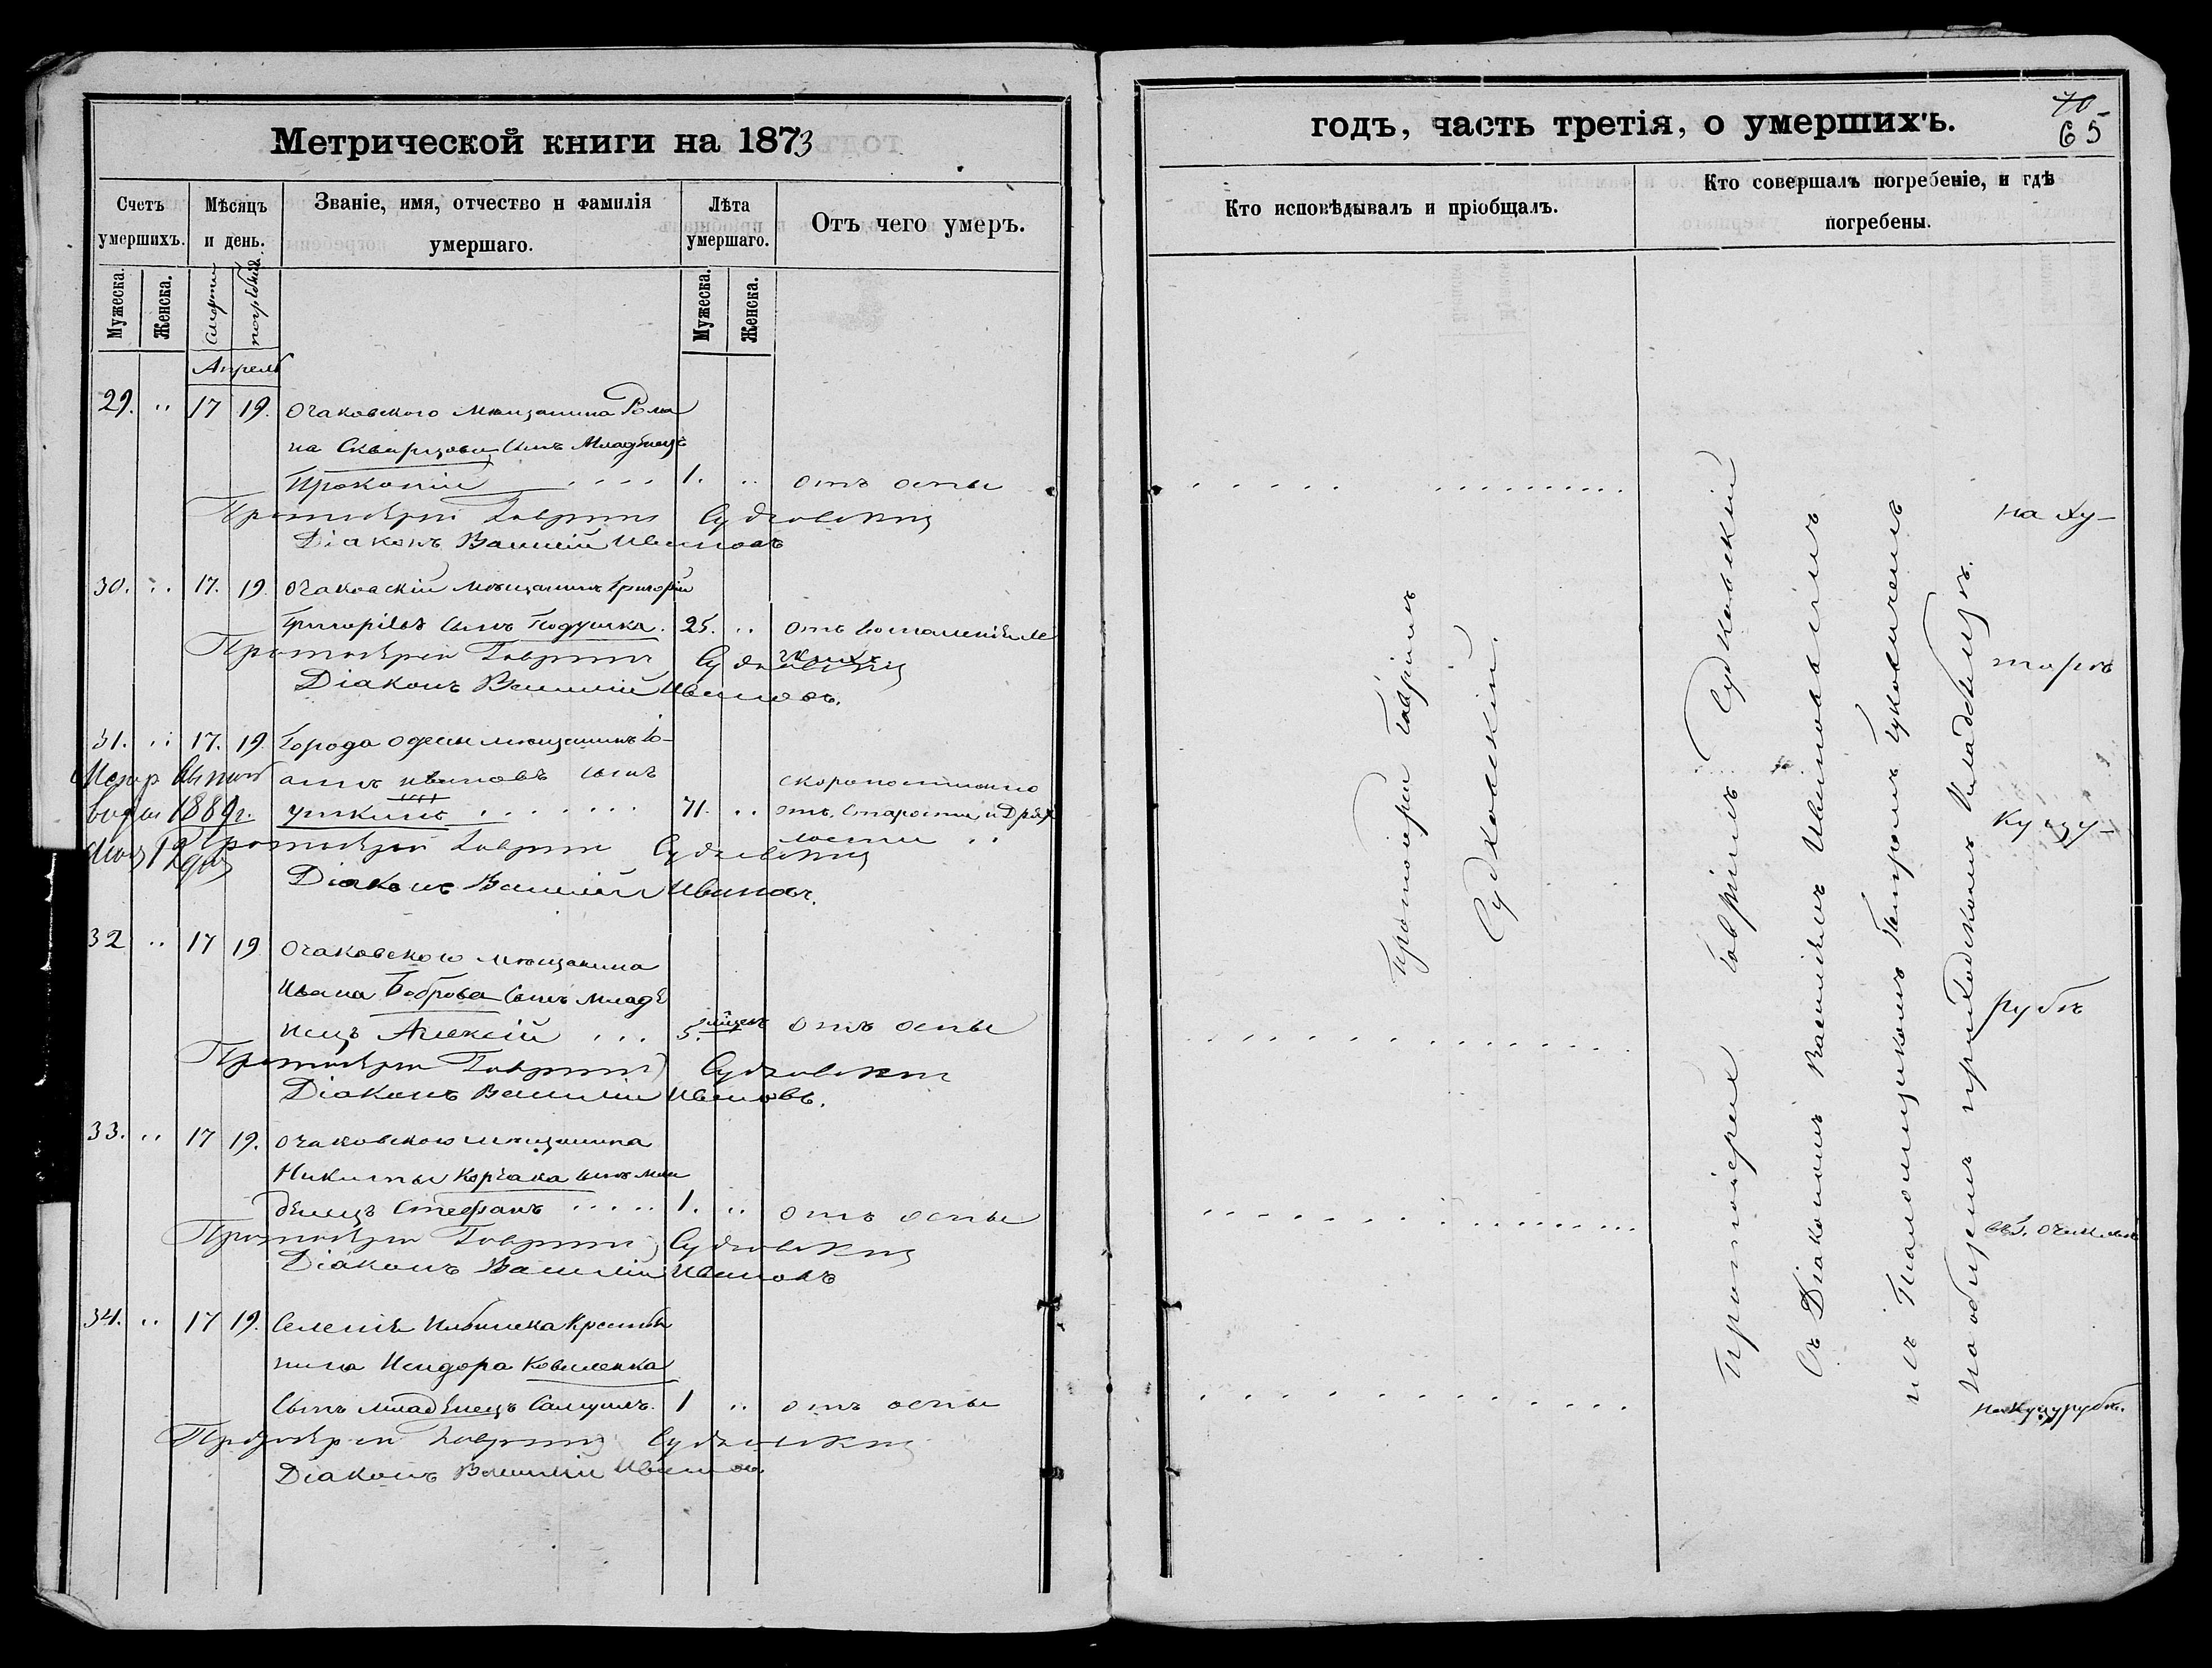 Метрической книги на 1873
Счетъ умершихъ.
Мѣсяцъ и день.
Званіе, имя, отчество и фамилія умершаго.
Лѣта умершаго.
Отъ чего умеръ.
Мужеска.
Женска.
смерти
погребенія.
Мужеска.
Женска.
Апрель
29. " 17 19. Очаковского мѣщанина Рома
на Скварцова сынъ младенецъ
Прокопій 1. " отъ оспы
Протоіерей Гавріилъ Судковскій
Діаконъ Василій Ивановъ
30. " 17. 19. Очаковскій мѣщанинъ Григорій
Григоріевъ сынъ Подушка. 25. " отъ
Протоіерей Гавріилъ Судковскій
Діаконъ Василій Ивановъ.
31. " 17. 19. Города Одессы мѣщанинъ Іо-
аннъ Ивановъ сынъ скоропостижно
Уткинъ 71. " отъ старости и дрях
лости
1889 г.
Протоіерей Гавріилъ Судковскій
Діаконъ Василій Ивановъ.
32 " 17 19 Очаковского мѣщанина
Ивана Боброва сынъ младе
нецъ Алексій 5. мѣсяц. отъ оспы
Протоіерей Гавріилъ Судковскій
Діаконъ Василій Ивановъ.
33. " 17 19. Очаковского мѣщанина
Никиты Корчака сынъ мла
денецъ Стефанъ 1. " отъ оспы
Протоіерей Гавріилъ Судковскій
Діаконъ Василій Ивановъ
34. " 17 19. Селенія крестья
нина Исидора Коваленка
сынъ младенецъ Самуилъ. 1 " отъ оспы
Протоіерей Гавріилъ Судковскій
Діаконъ Василій Ивановъ.
годъ, часть третія, о умершихъ.
70
65
Кто исповѣдывалъ и пріобщалъ.
Кто совершалъ погребеніе, и гдѣ погребены.
Протоіерей Гавріилъ
Судковскій.
Протоіерей Гавріилъ Судковскій
съ Діакономъ Василіемъ Ивановымъ
и съ Псаломщикомъ Петромъ
на общемъ приходскомъ кладбищѣ.
на ху-
торѣ
Куцу-
рубѣ
въ г. Очаковѣ
на Куцурубѣ.